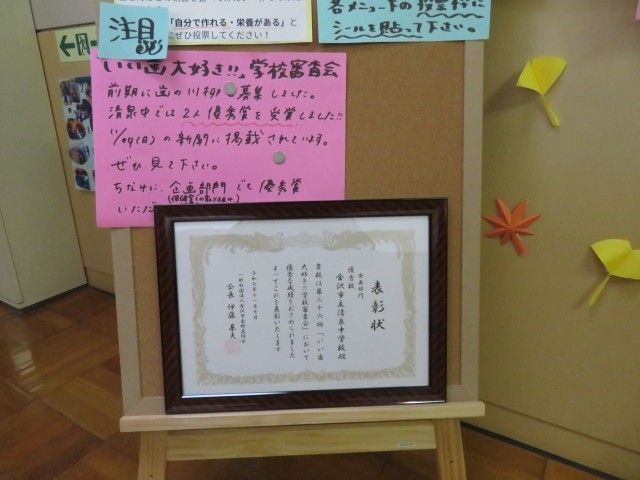 「自分で作れる・栄養がある」と
にぜひ投票してください！
各メニュー下の投票枠に
シールを貼って下さい。
注目
いい歯大好き!!学校審査会
前期に歯の川柳 募集しました。
清泉中では2人優秀賞を受賞しました!!
11/09(日)の新聞に掲載されています。
ぜひ見て下さい。
ちなみに、企画部門でも優秀賞
いただ
表彰状
企画部門
優秀校
金沢市立清泉中学校殿
貴校は第二十六回「いい歯
大好き!!学校審査会」において
優秀な成績をおさめられました
よってこれを表彰いたします
令和七年十一月九日
一般社団法人金沢市歯科医師会
会長 伊藤 基夫